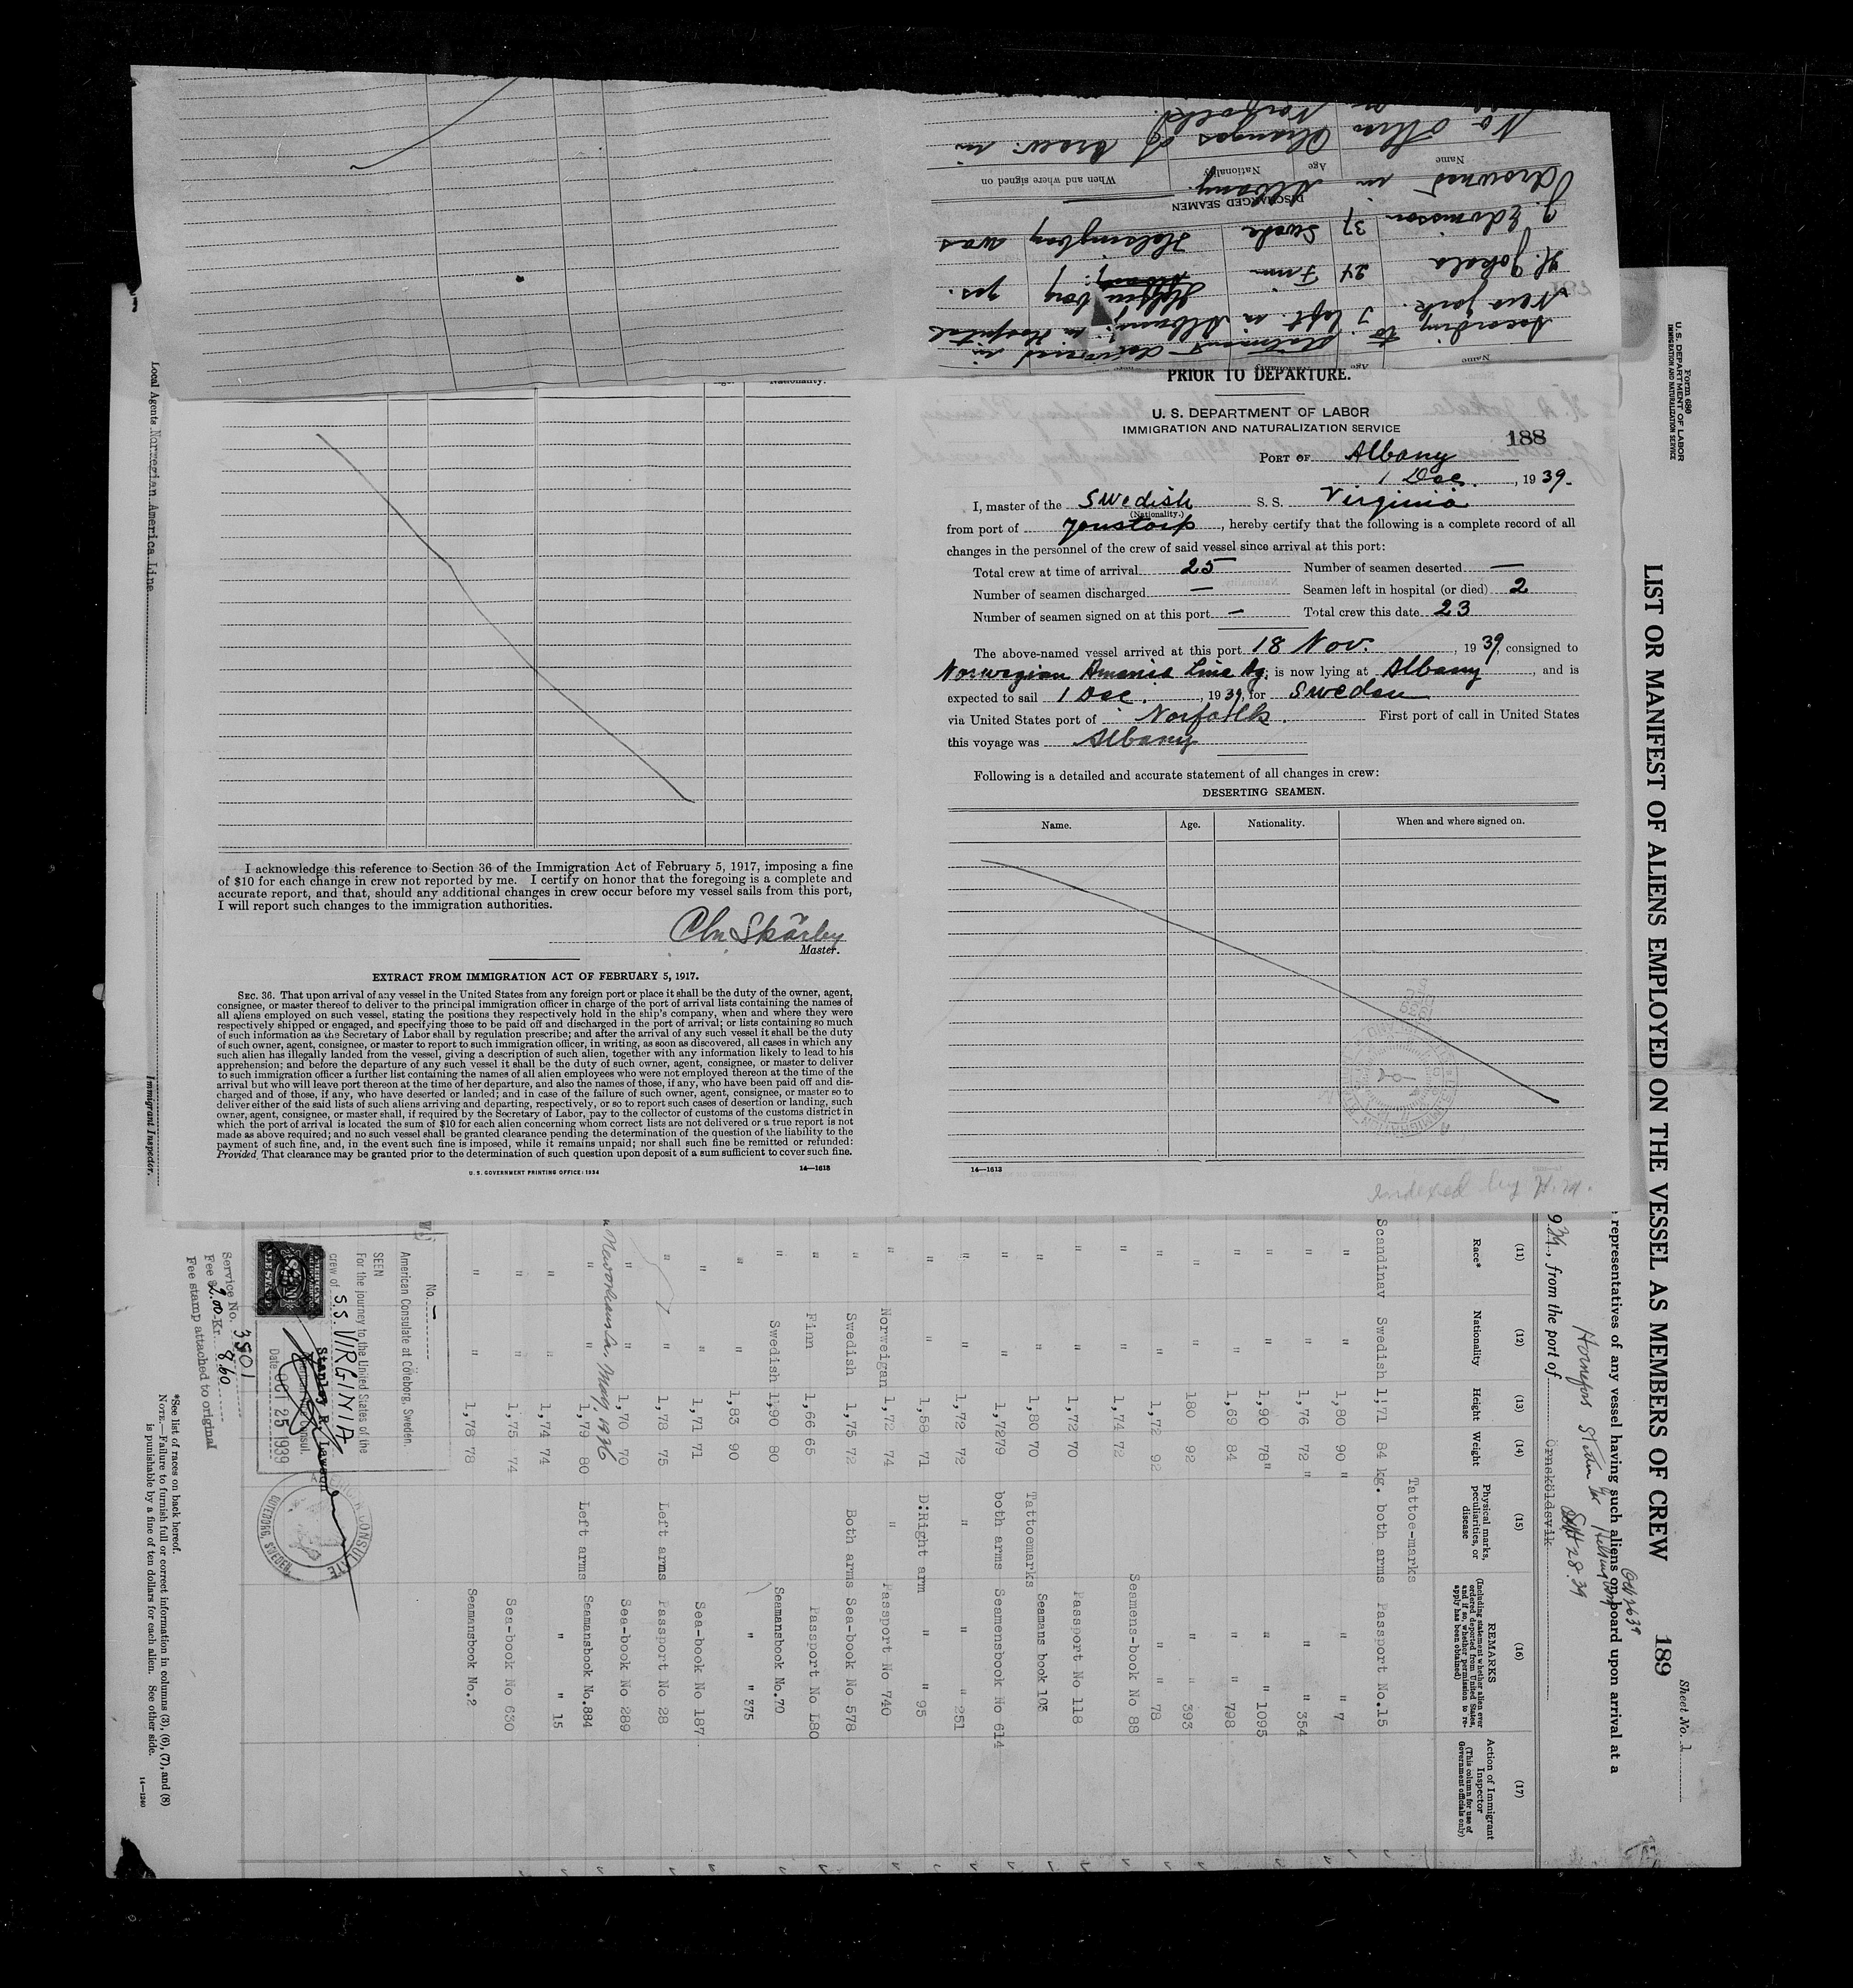 No other Changes of Crew in
Norfolk.
Name Age Nationality When and where signed on
drowned in Albany.
DISCHARGED SEAMEN
J. Edvinsson 37 Swede Helsingborg was
H. Jokela 24 Finn Helsingborg yes.
New York. I left in Albany in Hospital
According to statement delivered in
Name Age
PRIOR TO DEPARTURE.
U. S. DEPARTMENT OF LABOR
IMMIGRATION AND NATURALIZATION SERVICE
188
PORT OF Albany
1 Dec., 1939.
I, master of the Swedish S. S. Virginia
(Nationality.)
from port of Jonstorp, hereby certify that the following is a complete record of all
changes in the personnel of the crew of said vessel since arrival at this port:
Total crew at time of arrival 25 Number of seamen deserted —
Number of seamen discharged — Seamen left in hospital (or died) 2
Number of seamen signed on at this port — Total crew this date 23
The above-named vessel arrived at this port 18 Nov., 1939, consigned to
Norwegian America Line Ag, is now lying at Albany, and is
expected to sail 1 Dec., 1939, for Sweden
via United States port of Norfolk. First port of call in United States
this voyage was Albany
Following is a detailed and accurate statement of all changes in crew:
DESERTING SEAMEN.
Name. Age. Nationality. When and where signed on.
14—1613
Indexed by H.M.
Nationality.
I acknowledge this reference to Section 36 of the Immigration Act of February 5, 1917, imposing a fine
of $10 for each change in crew not reported by me. I certify on honor that the foregoing is a complete and
accurate report, and that, should any additional changes in crew occur before my vessel sails from this port,
I will report such changes to the immigration authorities.
Chr. Skårby
Master.
EXTRACT FROM IMMIGRATION ACT OF FEBRUARY 5, 1917.
SEC. 36. That upon arrival of any vessel in the United States from any foreign port or place it shall be the duty of the owner, agent,
consignee, or master thereof to deliver to the principal immigration officer in charge of the port of arrival lists containing the names of
all aliens employed on such vessel, stating the positions they respectively hold in the ship's company, when and where they were
respectively shipped or engaged, and specifying those to be paid off and discharged in the port of arrival; or lists containing so much
of such information as the Secretary of Labor shall by regulation prescribe; and after the arrival of any such vessel it shall be the duty
of such owner, agent, consignee, or master to report to such immigration officer, in writing, as soon as discovered, all cases in which any
such alien has illegally landed from the vessel, giving a description of such alien, together with any information likely to lead to his
apprehension; and before the departure of any such vessel it shall be the duty of such owner, agent, consignee, or master to deliver
to such immigration officer a further list containing the names of all alien employees who were not employed thereon at the time of the
arrival but who will leave port thereon at the time of her departure, and also the names of those, if any, who have been paid off and dis-
charged and of those, if any, who have deserted or landed; and in case of the failure of such owner, agent, consignee, or master so to
deliver either of the said lists of such aliens arriving and departing, respectively, or so to report such cases of desertion or landing, such
owner, agent, consignee, or master shall, if required by the Secretary of Labor, pay to the collector of customs of the customs district in
which the port of arrival is located the sum of $10 for each alien concerning whom correct lists are not delivered or a true report is not
made as above required; and no such vessel shall be granted clearance pending the determination of the question of the liability to the
payment of such fine, and, in the event such fine is imposed, while it remains unpaid; nor shall such fine be remitted or refunded:
Provided, That clearance may be granted prior to the determination of such question upon deposit of a sum sufficient to cover such fine.
U. S. GOVERNMENT PRINTING OFFICE: 1934
14—1613
Sheet No. 1
Form 680
U. S. DEPARTMENT OF LABOR
IMMIGRATION AND NATURALIZATION SERVICE
LIST OR MANIFEST OF ALIENS EMPLOYED ON THE VESSEL AS MEMBERS OF CREW 189
representatives of any vessel having such aliens on board upon arrival at a
Oct 26 39
Hornefors Stettin for Helsingborg
Sept 28.39
, from the port of Ornsköldsvik
(11) (12) (13) (14) (15) (16) (17)
Race* Nationality Height Weight Physical marks, peculiarities, or disease REMARKS (Including statement whether alien ever ordered deported from United States, and if so, whether permission to re-apply has been obtained) Action of Immigrant Inspector (This column for use of Government officials only)
Tattoe-marks
Scandinav Swedish 1,71 84 kg. both arms Passport No.15
" " 1,80 90 " " " 7
" " 1,76 72 " " " 354
" " 1,90 78 " " " 1095
" " 1,69 84 " " 798
" " 180 92 " " 393
" " 1,72 92 " " 78
" " 1,74 72 Seamens-book No 88
" " 1,72 70 Passport No 118
" " 1,80 70 Tattoemarks Seamans book 103
" " 1,7279 both arms Seamensbook No 614
" " 1,72 72 " " " 251
" " 1,58 71 D:Right arm " " 95
Norweigan 1,72 74 " Passport No 740
" Swedish 1,75 72 Both arms Sea-book No 578
" Finn 1,66 65 Passport No L80
" Swedish 1,90 80 Seamansbook No.70
" " 1,83 90 " " 375
" " 1,71 71 Sea-book No 187
" " 1,78 75 Left arms Passport No 28
" " 1,70 70 Sea-book No 289
New Orleans La. May, 1936
" " 1,79 80 Left arms Seamansbook No.884
" " 1,74 74 " " 15
" " 1,75 74 Sea-book No 630
" " 1,78 78 Seamansbook No.2
No. —
American Consulate at Göteborg, Sweden.
SEEN
For the journey to the United States of the
crew of S.S. VIRGINIA
Stanley R. Lawson
American Vice Consul.
Date OCT 25 1939
CONSULATE
GOTEBORG, SWEDEN
Service No. 3501
Fee $2.00-Kr. 8.60
Fee stamp attached to original
*See list of races on back hereof.
NOTE.—Failure to furnish full or correct information in columns (3), (6), (7), and (8)
is punishable by a fine of ten dollars for each alien. See other side.
14—1240
Local Agents Norwegian America Line
Immigrant Inspector.